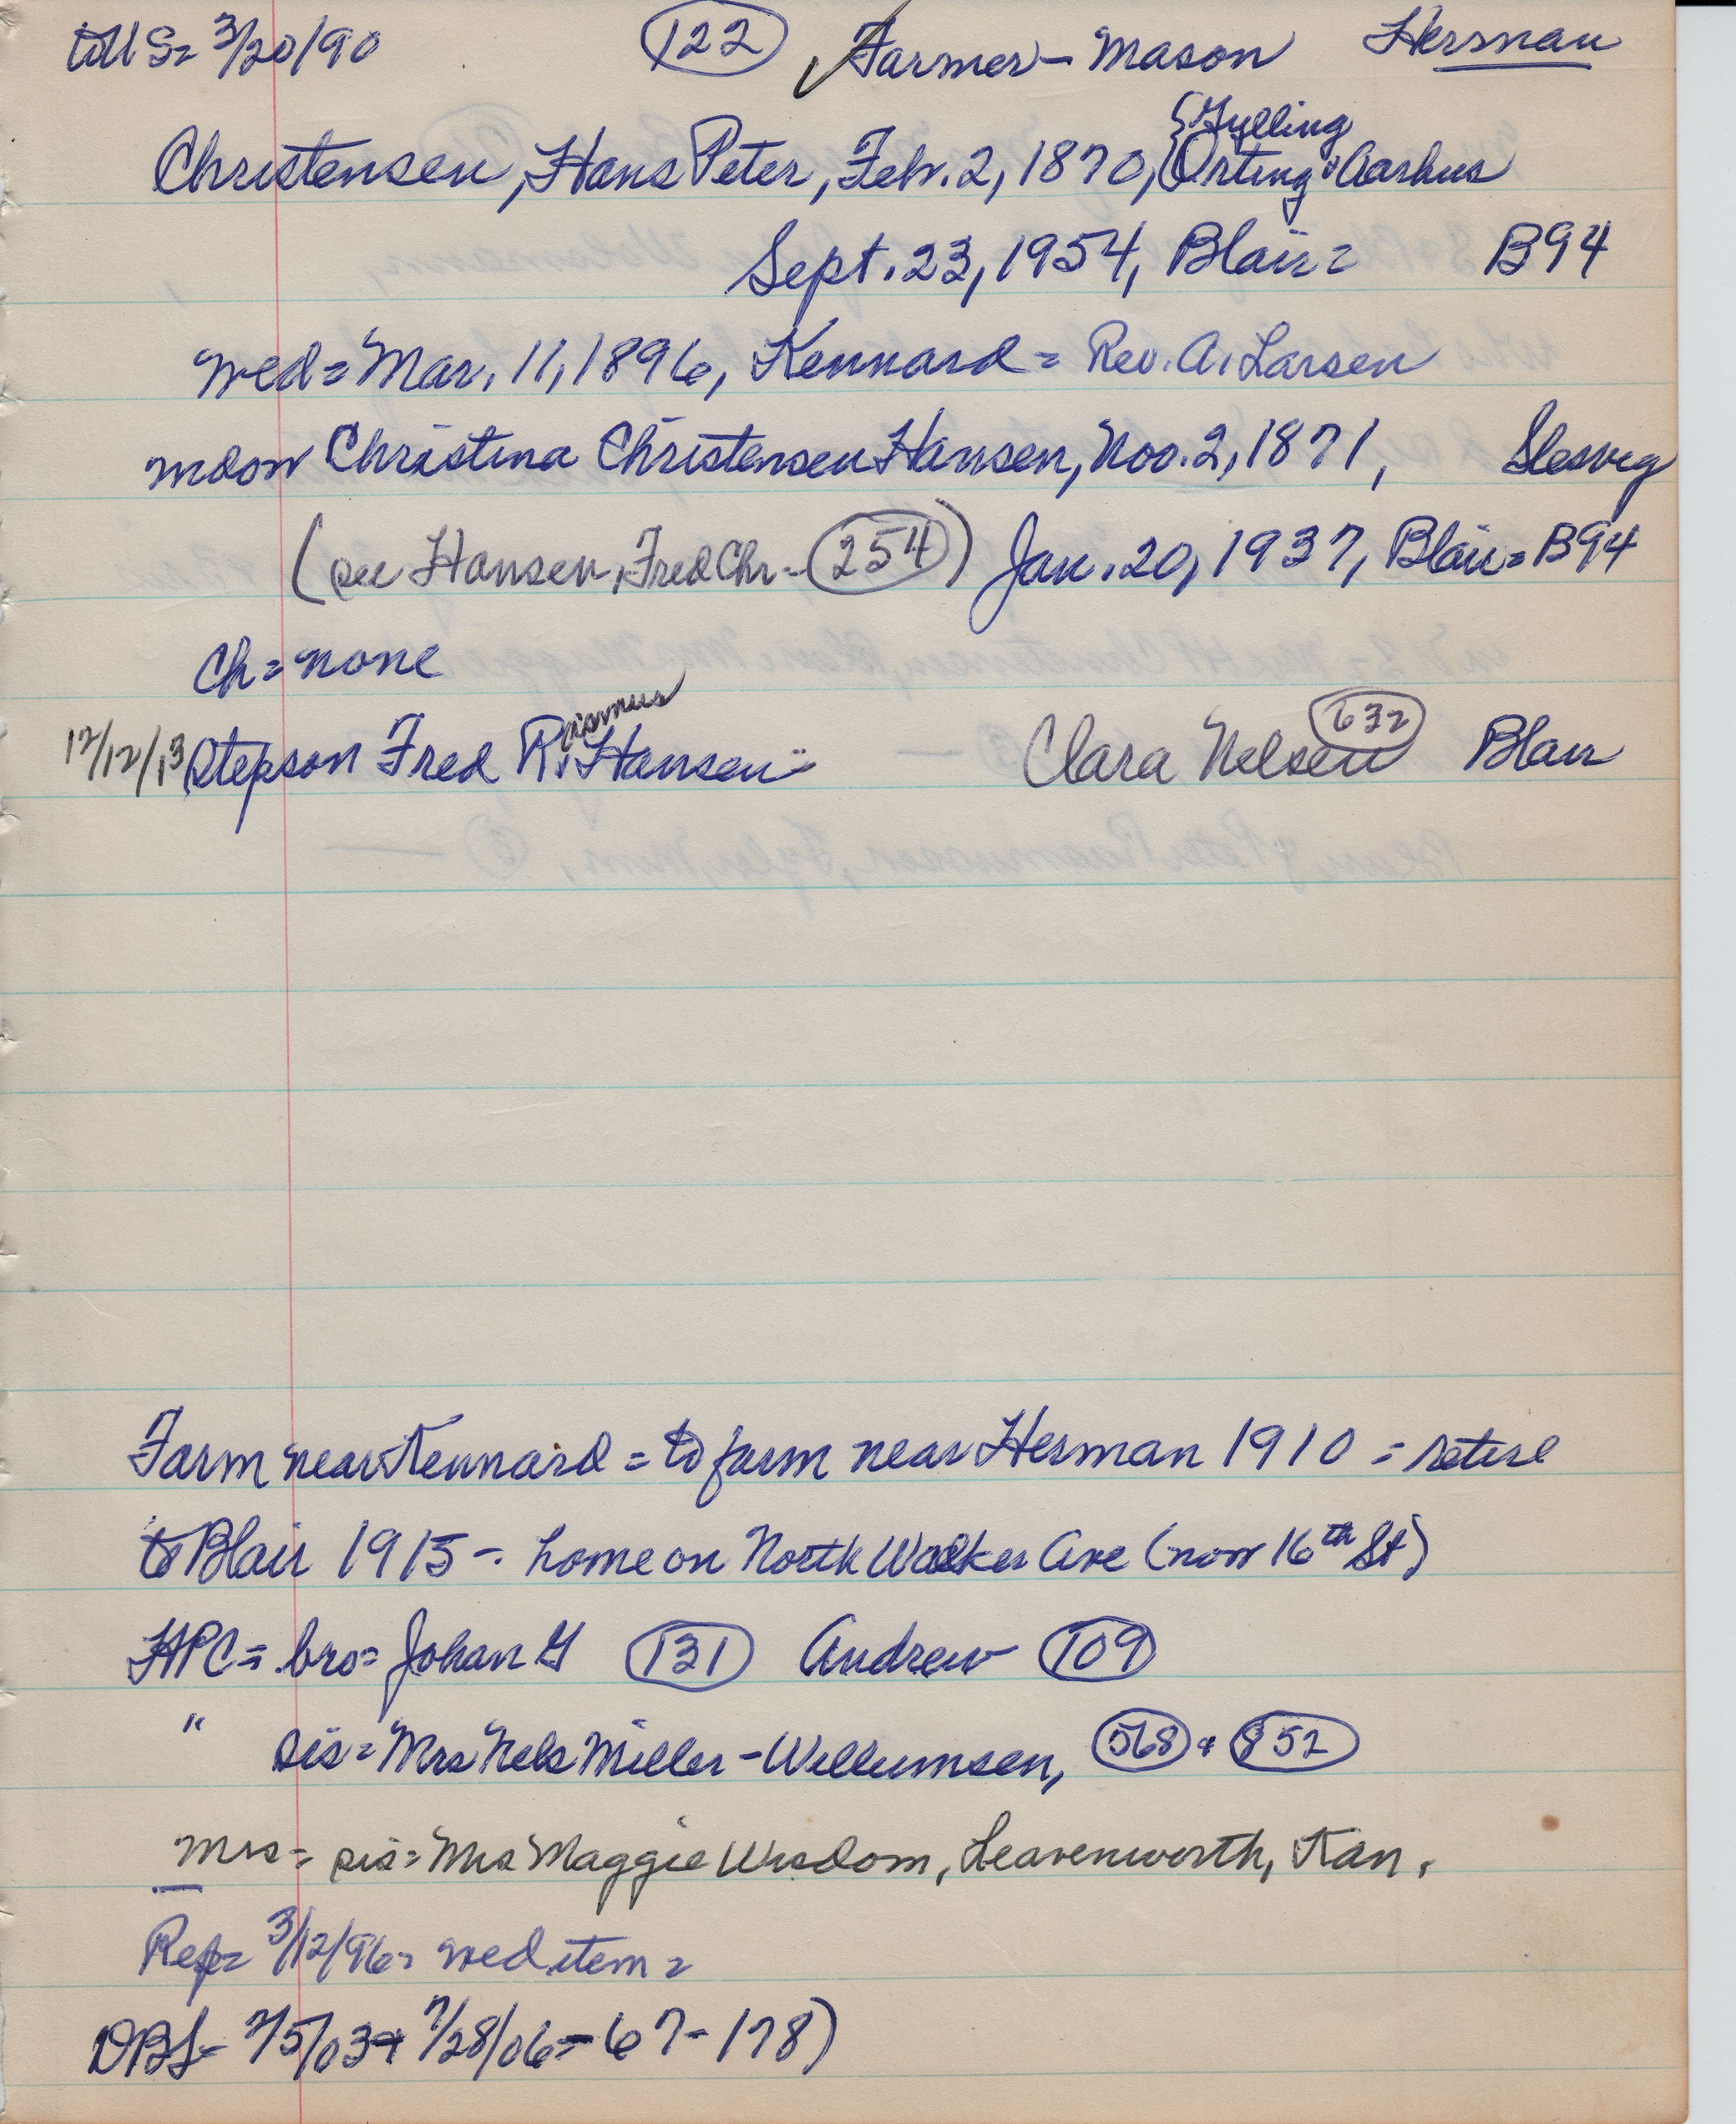 to US= 3/20/90 (122) ✓ Farmer - Mason Herman
{Gylling
Christensen, Hans Peter, Feb. 2, 1870, {Orting & Aarhus
Sept. 23, 1954, Blair = B94
wed = Mar. 11, 1896, Kennard = Rev. A. Larsen
wdow Christina Christensen Hansen, Nov. 2, 1871, Slesvig
(see Hansen, Fred Chr - (254)) Jan. 20, 1937, Blair = B94
Ch = none
12/12/13 stepson Fred R.asmus Hansen = Clara Nelsen (632) Blair
Farm near Kennard = to farm near Herman 1910 = retire
to Blair 1915 - home on North Walker Ave (now 16th St)
HPC = bro = Johan G (131) Andrew (109)
" sis = Mrs Nels Miller - Willumsen, (568) + (852)
Mrs = sis = Mrs Maggie Wisdom, Leavenworth, Kan.
Rep = 3/12/96 = wed item =
DBS - 7/5/03 + 7/28/06 = 67 - 178)